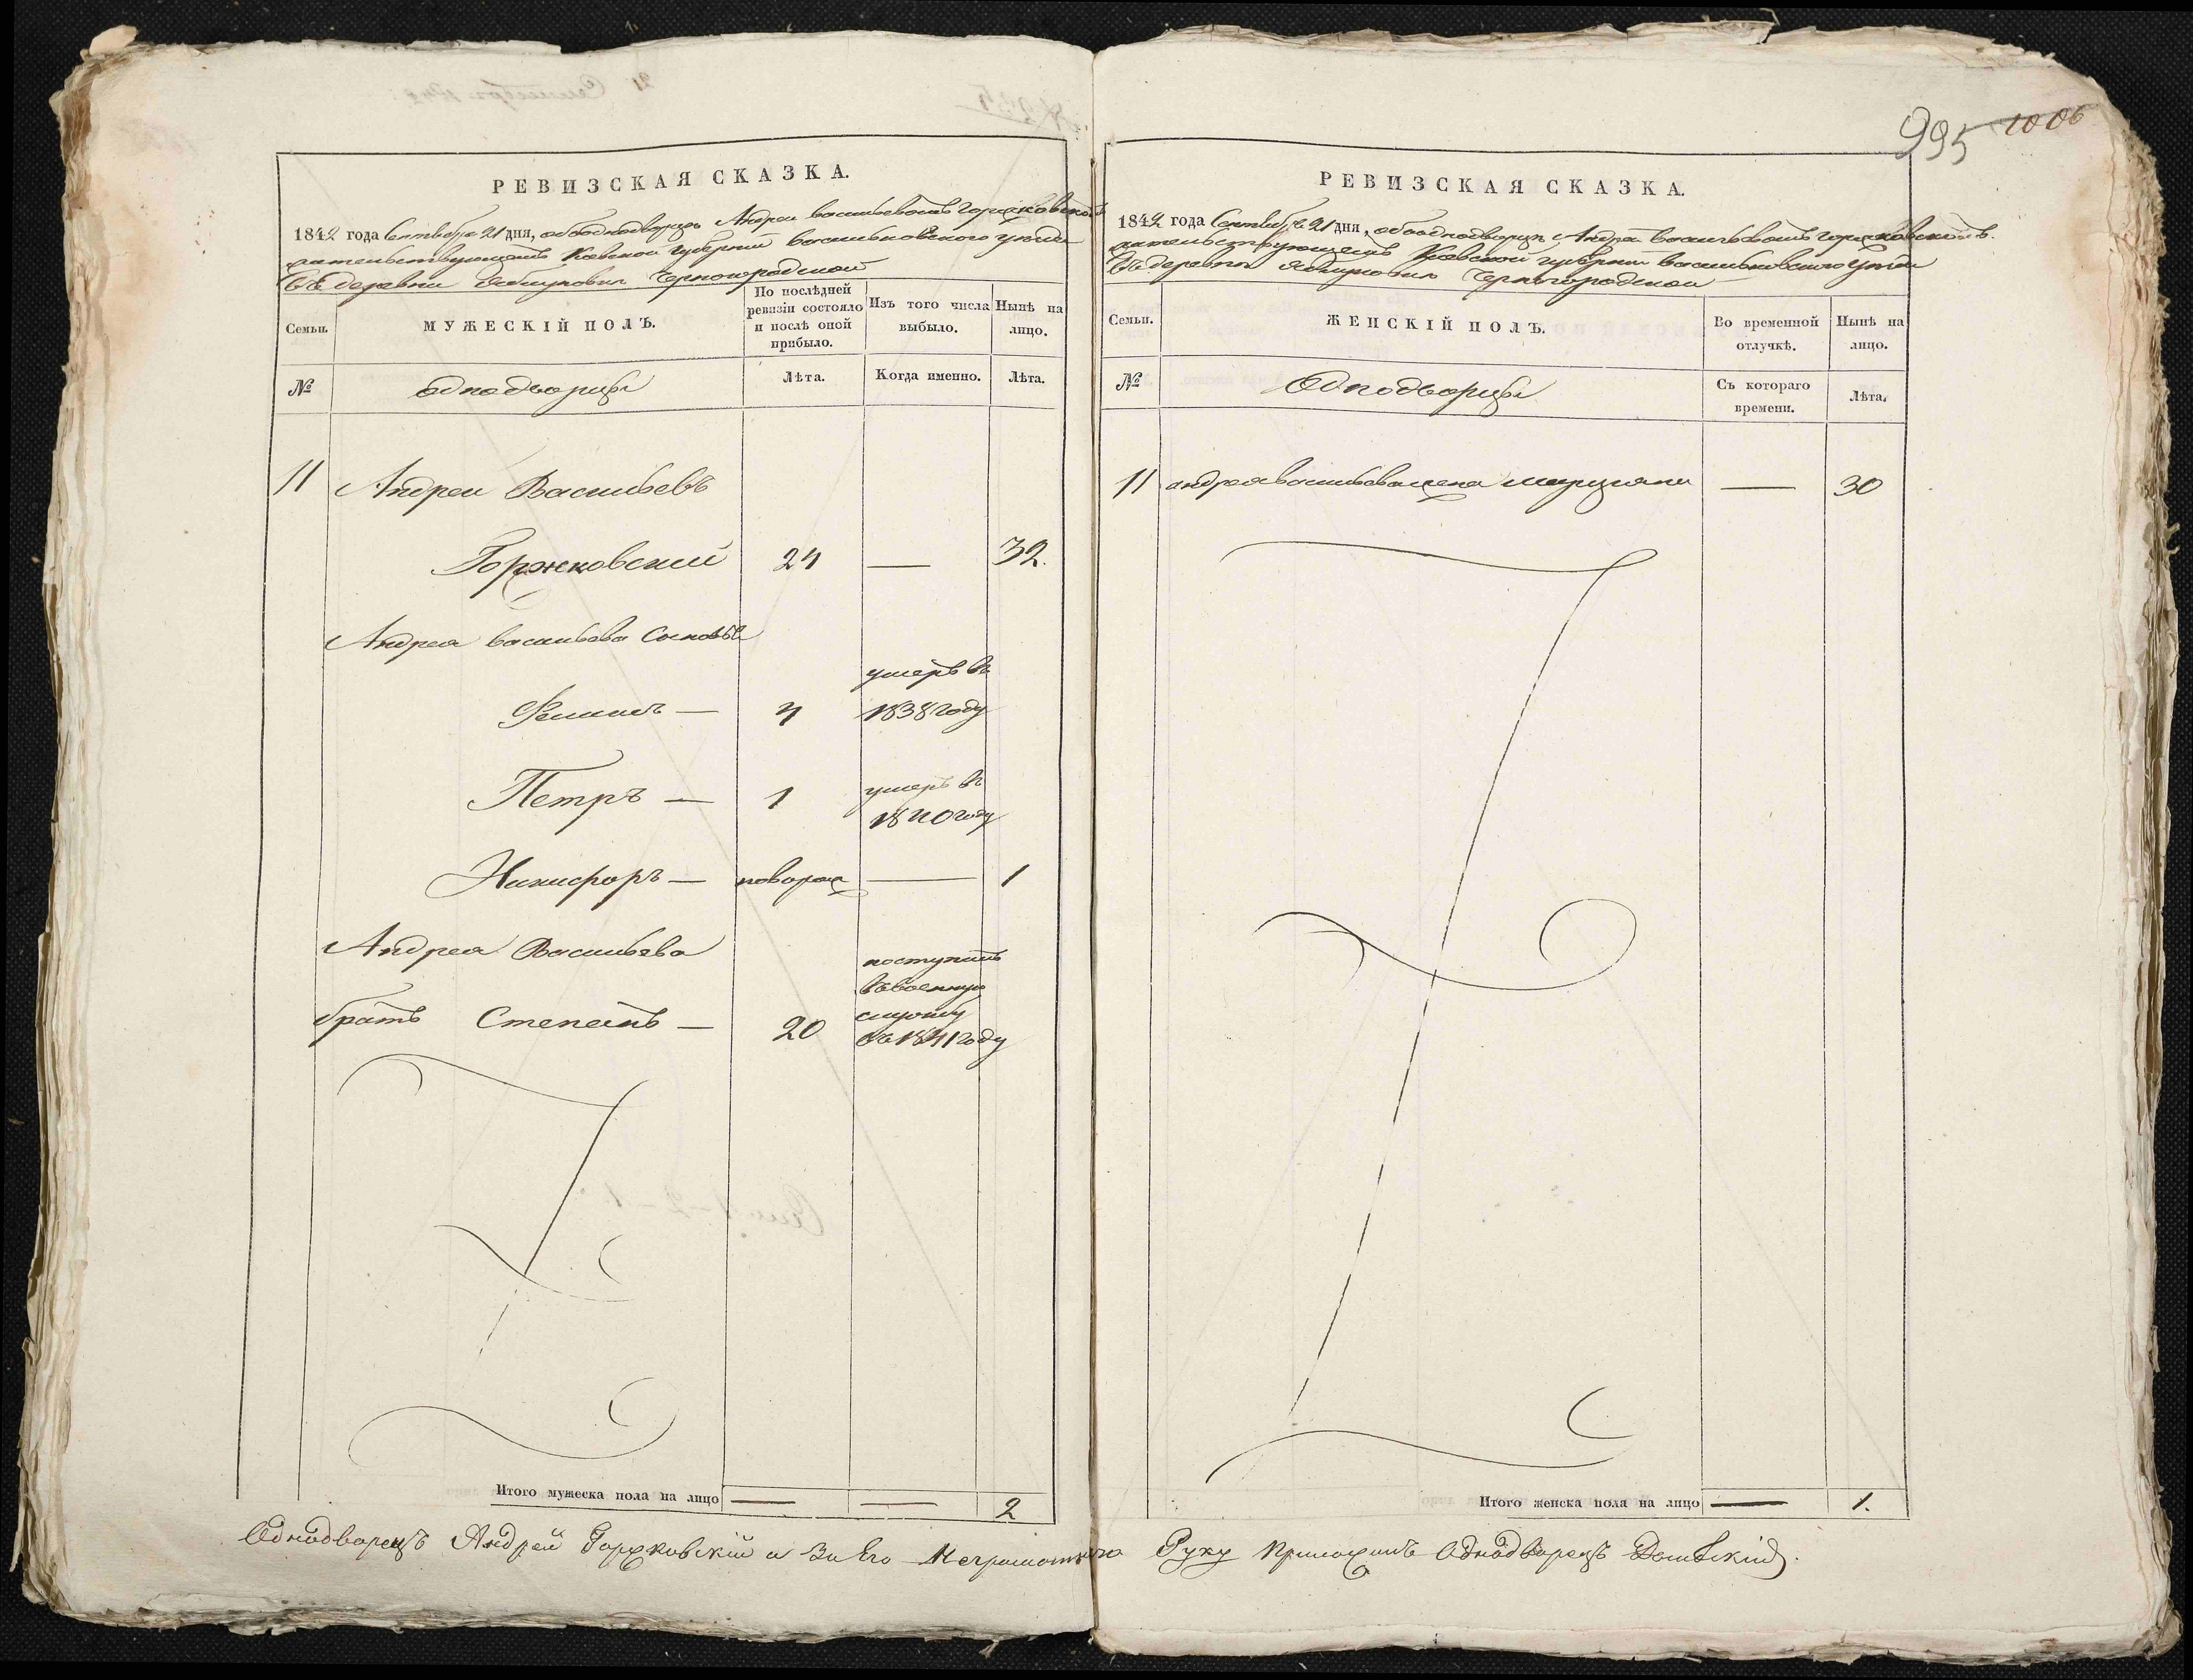 995 1006
РЕВИЗСКАЯ СКАЗКА.
1842 года Сентября 21 дня, объ однодворце Андреи Васильевомъ Горжковскомъ
жительствующемъ Киевской Губернии Васильковскаго уезда
Въ деревни Яблуновки Черногородской
Семьи.
МУЖЕСКІЙ ПОЛЪ.
По послѣдней ревизіи состояло и послѣ оной прибыло.
Изъ того числа выбыло.
Нынѣ на лицо.
№
Однодворцы
Лѣта.
Когда именно.
Лѣта.
11 Андреи Васильевъ
Горжковский 24 — 32.
Андрея Васильева Сыновья
умеръ въ
— 4 1838 году
Петръ — 1 умеръ въ
1840 году
Никифоръ — новорож — 1
Андрея Васильева
поступилъ
въ военную
братъ Степанъ — 20 службу
въ 1841 году
Итого мужеска пола на лицо — — 2
РЕВИЗСКАЯ СКАЗКА.
1842 года Сентября 21 дня, объ однодворце Андреи Васильевомъ Горжковскомъ.
жительствующемъ Киевской губернии Васильковскаго уезда
Въ деревни Яблуновки Черногородской
Семьи.
ЖЕНСКІЙ ПОЛЪ.
Во временной отлучкѣ.
Нынѣ на лицо.
№
Однодворцы
Съ котораго времени.
Лѣта.
11 андрея васильева жена — 30
Итого женска пола на лицо — 1.
Однодворецъ Андрей Горжковскій а За Его Неграмотнаго Руку Приложилъ Однодворецъ